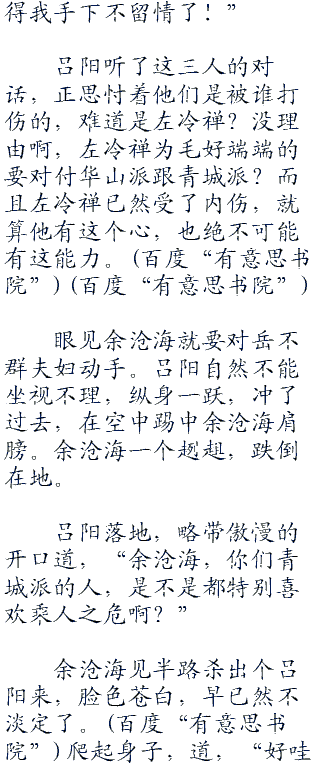 得我手下不留情了！”
吕阳听了这三人的对
话，正思忖着他们是被谁打
伤的，难道是左冷禅？没理
由啊，左冷禅为毛好端端的
要对付华山派跟青城派？而
且左冷禅已然受了内伤，就
算他有这个心，也绝不可能
有这能力。(百度“有意思书
院”)(百度“有意思书院”)
眼见余沧海就要对岳不
群夫妇动手。吕阳自然不能
坐视不理，纵身一跃，冲了
过去，在空中踢中余沧海肩
膀。余沧海一个趔趄，跌倒
在地。
吕阳落地，略带傲慢的
开口道，“余沧海，你们青
城派的人，是不是都特别喜
欢乘人之危啊？”
余沧海见半路杀出个吕
阳来，脸色苍白，早已然不
淡定了。(百度“有意思书
院”)爬起身子，道，“好哇